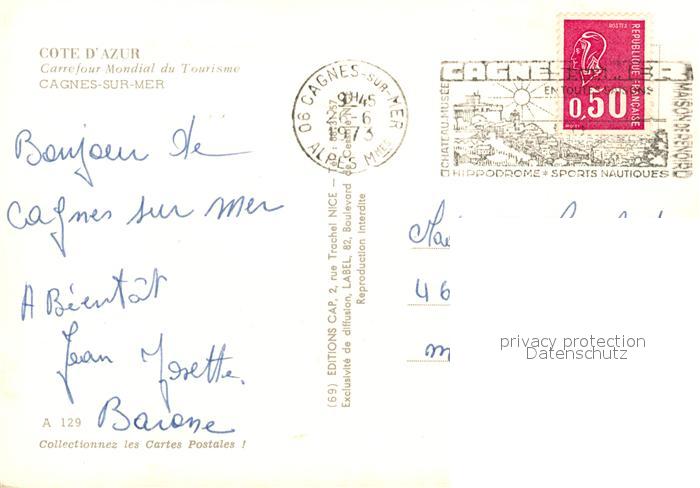 COTE D'AZUR
Carrefour Mondial du Tourisme
CAGNES-SUR-MER
Bonjour de
Cagnes sur mer
A Bientôt
Jean Josette
A 129
Collectionnez les Cartes Postales !
(69) EDITIONS CAP, 2, rue Trachel NICE -
Exclusivité de diffusion, LABEL, 82, Boulevard
Reproduction Interdite
06 CAGNES-SUR-MER
9H45
1973
ALPES Mmes
POSTES
RÉPUBLIQUE FRANÇAISE
0,50
CAGNES-SUR-MER
EN TOUTES SAISONS
CHATEAU MUSÉE
MAISON DE RENOIR
HIPPODROME * SPORTS NAUTIQUES
46
m
privacy protection
Datenschutz